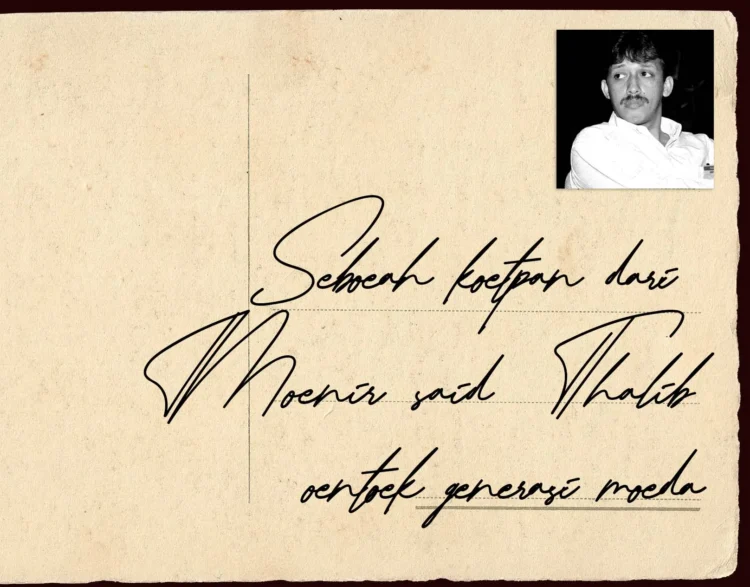 Seboeah koetpan dari
Moenir said Thalib
oentoek generasi moeda